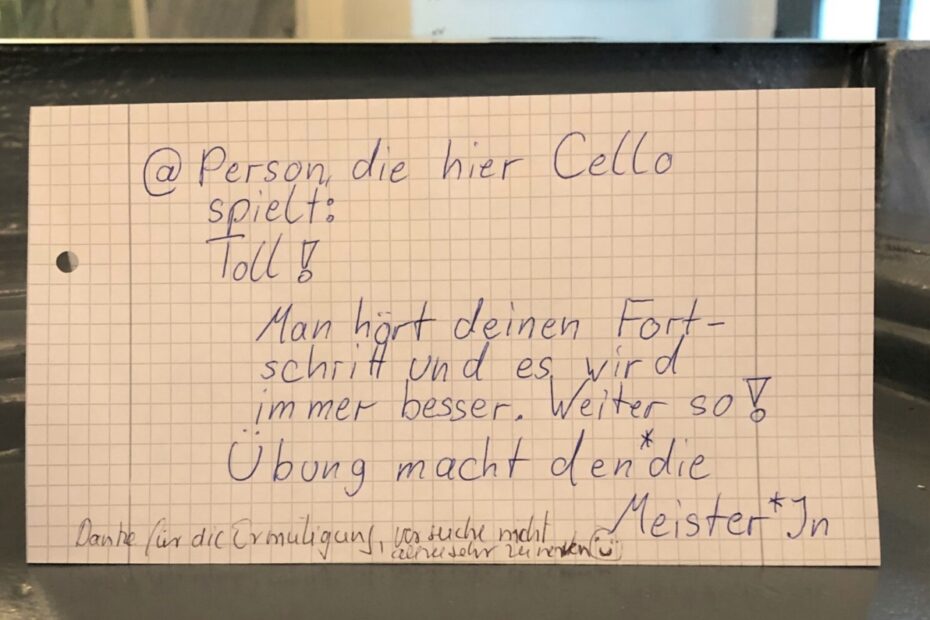 @ Person, die hier Cello
spielt:
Toll!
Man hört deinen Fort-
schritt und es wird
immer besser. Weiter so!
Übung macht den*die
Meister*In
Danke für die Ermutigung, versuche nicht
allzu sehr zu nerven